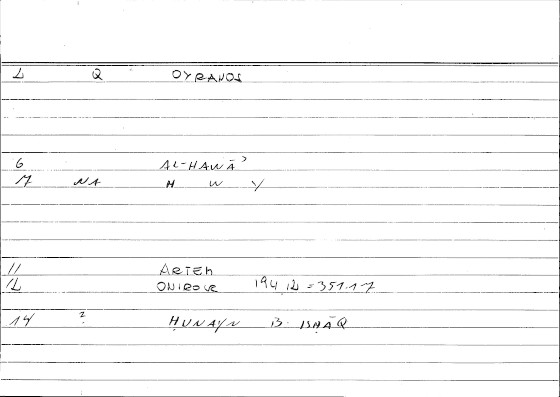 L Q OYRANOS
6 AL-HAWĀʾ
17 NA H W Y
11 ARTEM
12 ONIROCR 194.12 = 351.17
14 ? ḤUNAYN B. ISḤĀQ